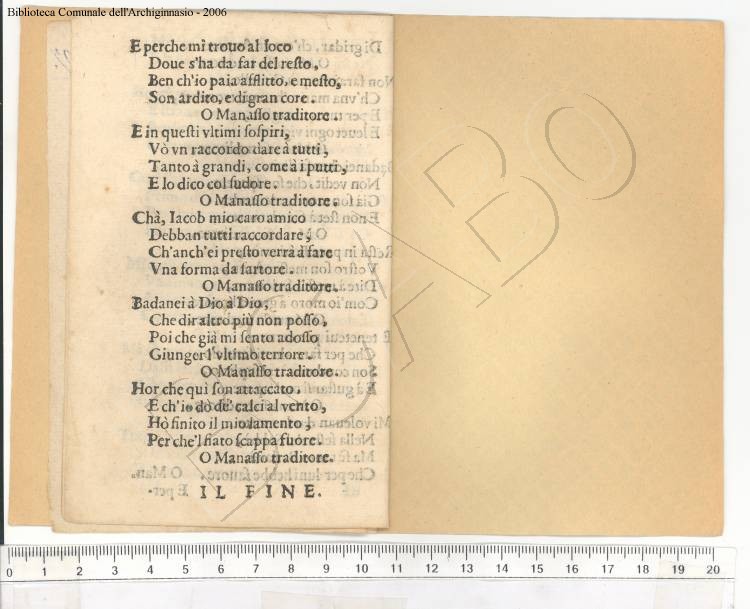 Biblioteca Comunale dell'Archiginnasio - 2006
E perche mi trouo al loco
Doue s'ha da far del resto,
Ben ch'io paia afflitto, e mesto,
Son ardito, e di gran core.
O Manasso traditore.
E in questi vltimi sospiri,
Vò vn raccordo dare à tutti,
Tanto à grandi, come à i putti,
E lo dico col sudore.
O Manasso traditore.
Chà, Iacob mio caro amico
Debban tutti raccordare,
Ch'anch'ei presto verrà à fare
Vna forma da sartore.
O Manasso traditore.
Badanei à Dio à Dio,
Che dir altro più non posso,
Poi che già mi sento adosso
Giunger l'vltimo terrore.
O Manasso traditore.
Hor che quì son attaccato.
E ch'io dò de' calci al vento,
Hò finito il mio lamento,
Per che'l fiato scappa fuore.
O Manasso traditore.
IL FINE.
ABO
0 1 2 3 4 5 6 7 8 9 10 11 12 13 14 15 16 17 18 19 20